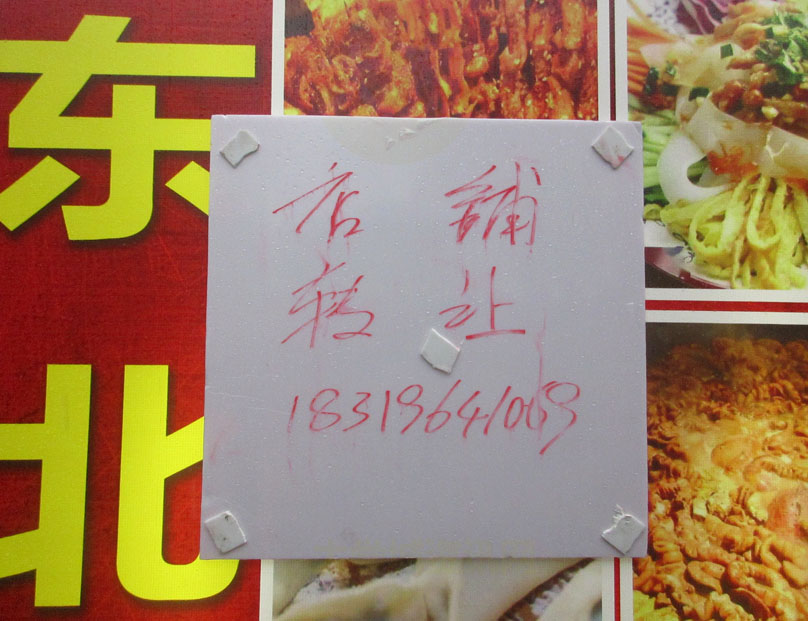 东北
店铺
转让
18319641069